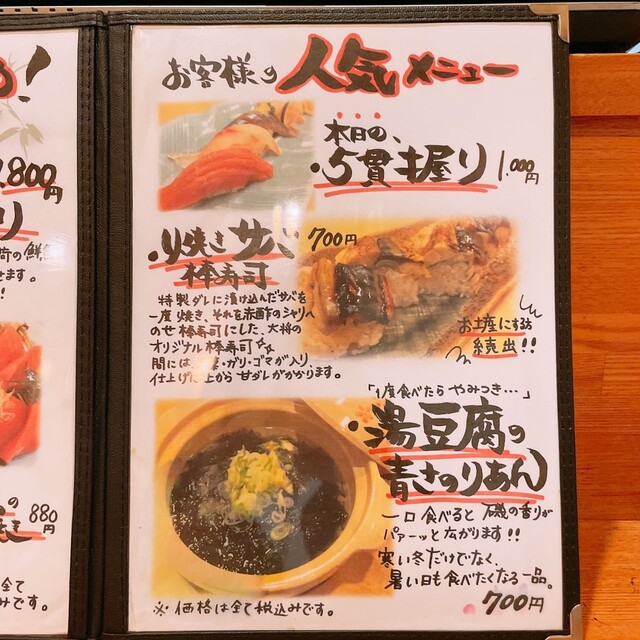 の!
1,800円
り
荷の鮮
せます。
!!
の
880円
全て
みです。
お客様の人気メニュー
本日の、
・5貫握り 1,000円
・焼きサバ 700円
棒寿司
特製ダレに漬け込んだサバを
一度焼き、それを赤酢のシャリへ
のせ棒寿司にした、大将の
オリジナル棒寿司☆☆
間には、・ガリ・ゴマが入り
仕上げに上から甘ダレがかかります。
お土産にする方
続出!!
「1度食べたらやみつき…」
・湯豆腐の
青さのりあん
一口食べると磯の香りが
パァーッと広がります!!
寒い冬だけでなく、
暑い日も食べたくなる一品。
700円
※価格は全て税込みです。